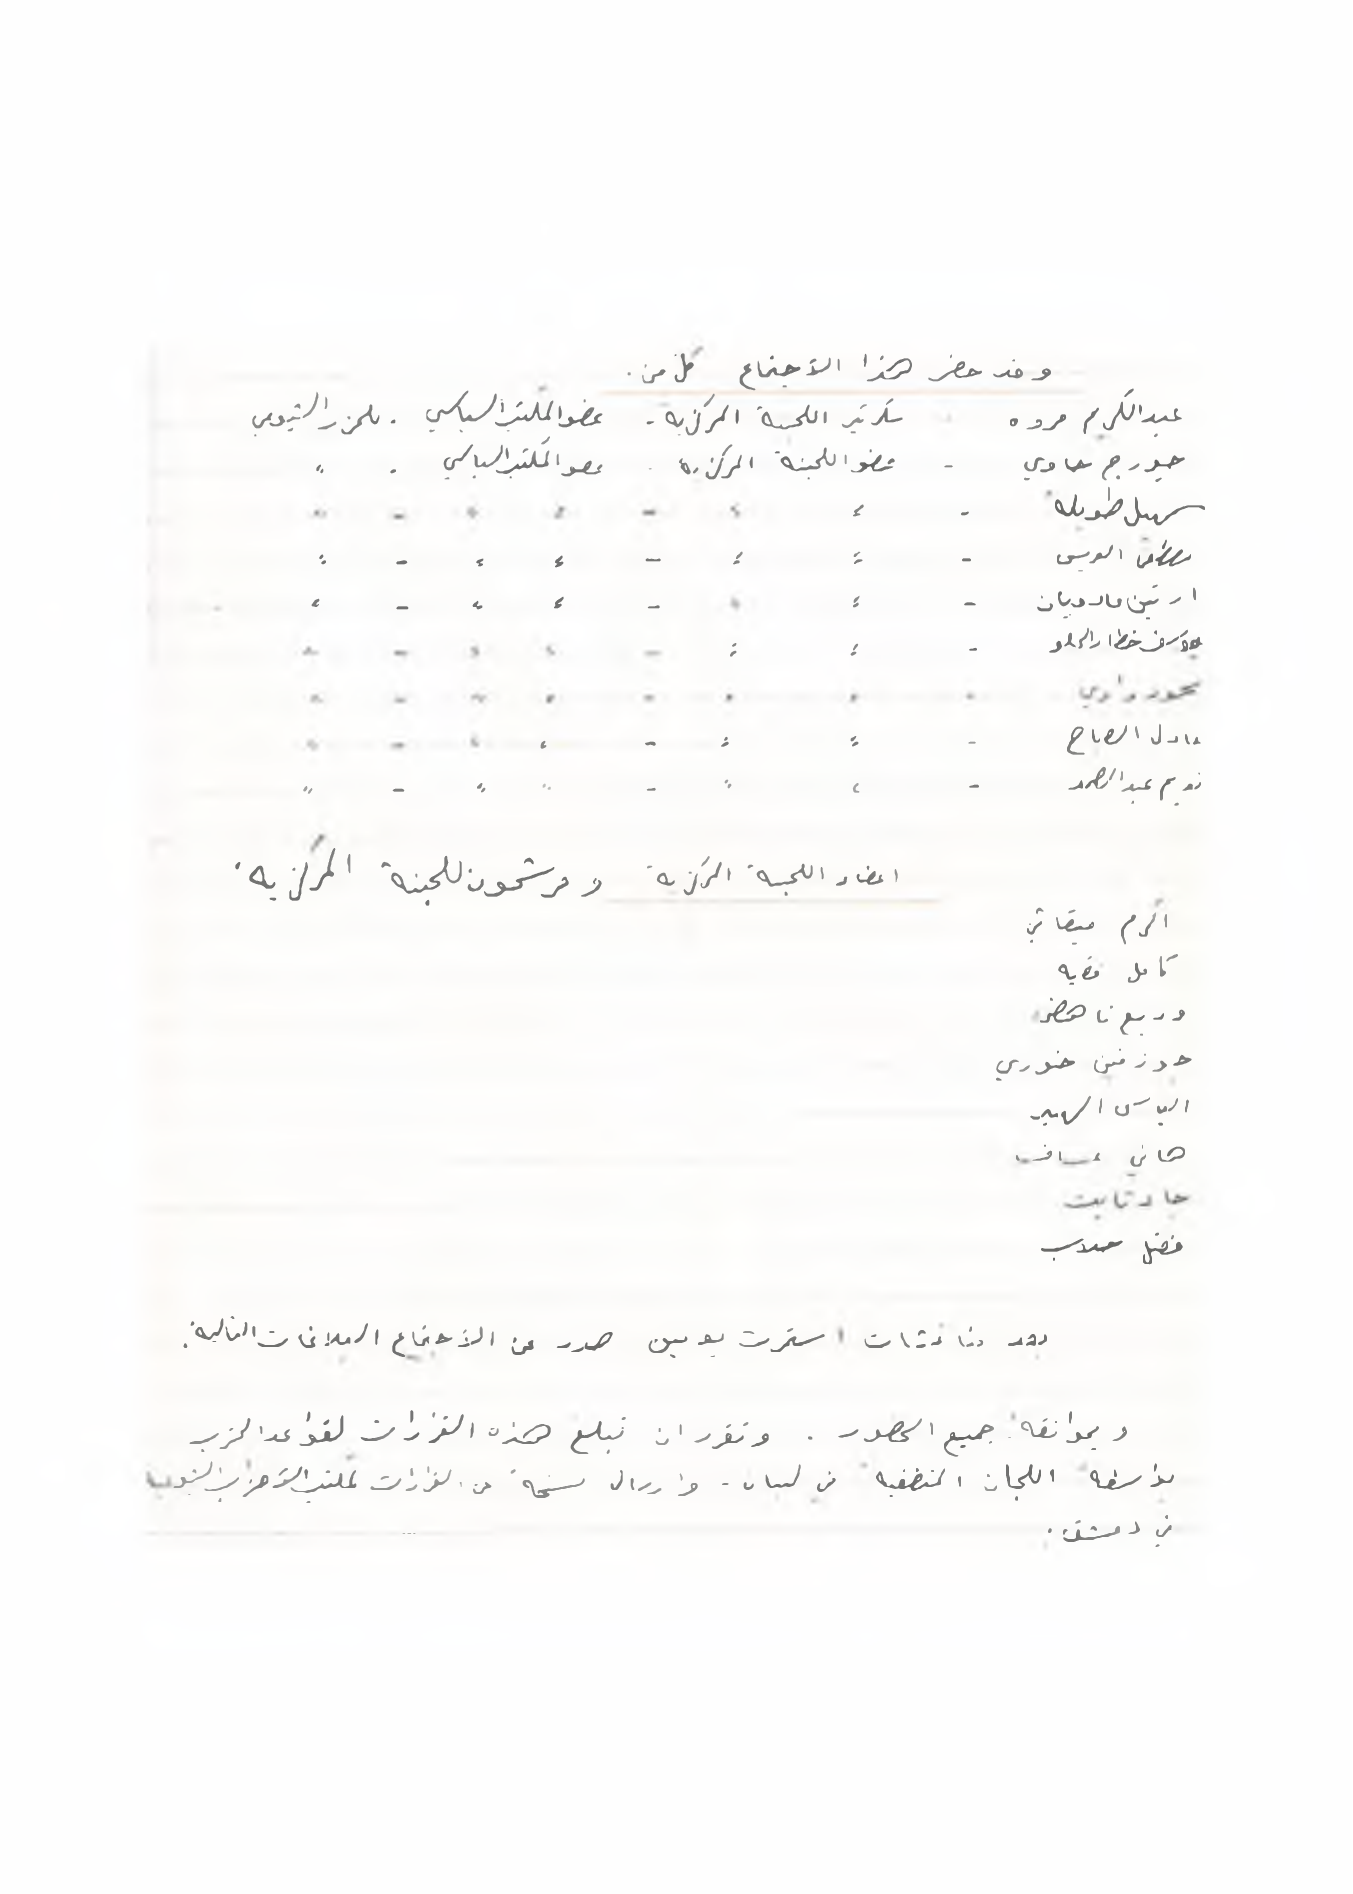 وقد حضر هذا الاجتماع كل من.
عبدالكريم مروه - سكرتير اللجنة المركزية - عضو المكتب السياسي . للحزب الشيوعي
جورج حاوي - عضو اللجنة المركزية - عضو المكتب السياسي . "
سهيل طويلة - " " - " " - "
مصطفى العريس - " " - " " - "
ارتين مادويان - " " - " " - "
خطار الحلو - " " - " " - "
محمود واوي - " " - " " - "
عادل الصباح - " " - " " - "
نديم عبدالصمد - " " - " " - "
اعضاء اللجنة المركزية ومرشحون للجنة المركزية.
اكرم ميقاتي
كامل فقيه
وديع ناهض
جوزفين خوري
الياس
هاني عساف
جاد تابت
فضل
بعد مناقشات استمرت يومين صدر عن الاجتماع التالية.
وبموافقة جميع الحضور . وتقرر ان تبلغ هذه القرارات لقواعد الحزب
بواسطة اللجان المنطقية في لبنان - وارسال نسخة من القرارات لمكتب الأحزاب الشيوعية
في دمشق.